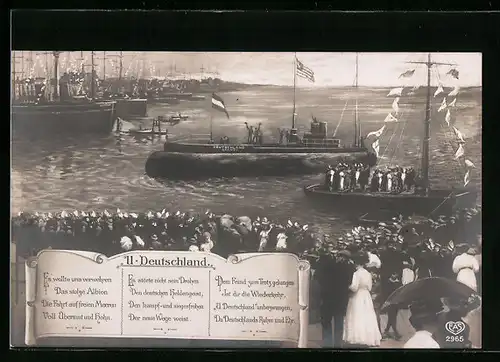 "U-Deutschland."
Es wollte uns verwehren
Das stolze Albion
Die Fahrt auf freien Meeren
Voll Übermut und Hohn.
Es störte nicht sein Drohen
Den deutschen Heldengeist,
Den kampf- und siegesfrohen
Der neue Wege weist.
Dem Feind zum Trotz gelungen
Ist dir die Wiederkehr,
U Deutschland unbezwungen,
Du Deutschlands Ruhm und Ehr.
DEUTSCHLAND
EAS
2965